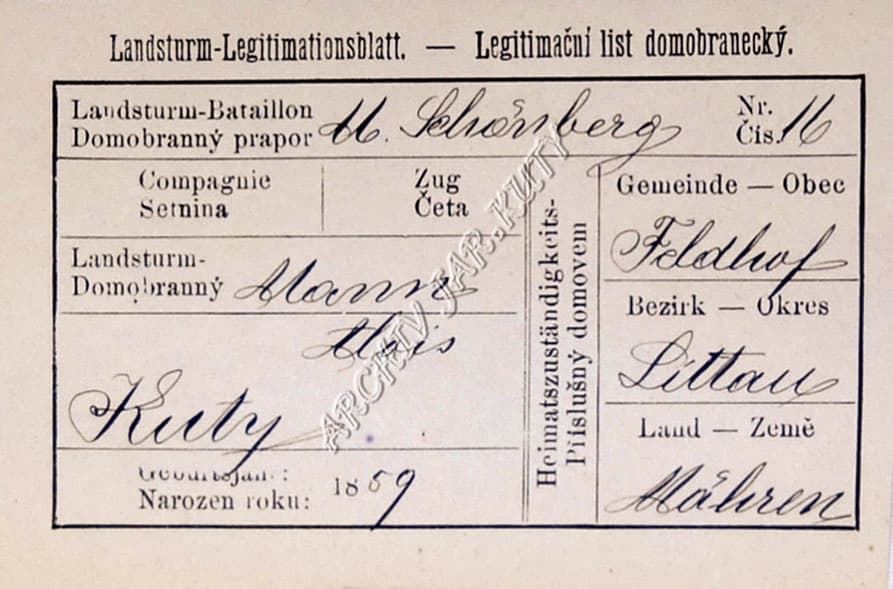 Landsturm-Legitimationsblatt. — Legitimační list domobranecký.
Landsturm-Bataillon
Domobranný prapor M. Schönberg
Nr.
Čís. 16
Compagnie
Setnina
Zug
Četa
Landsturm-
Domobranný Mann
Alois
Kuty
Geburtsjahr:
Narozen roku: 1859
Heimatszuständigkeits-
Příslušný domovem
Gemeinde — Obec
Feldhof
Bezirk — Okres
Littau
Land — Země
Mähren
ARCHIV. JAR. KUTY